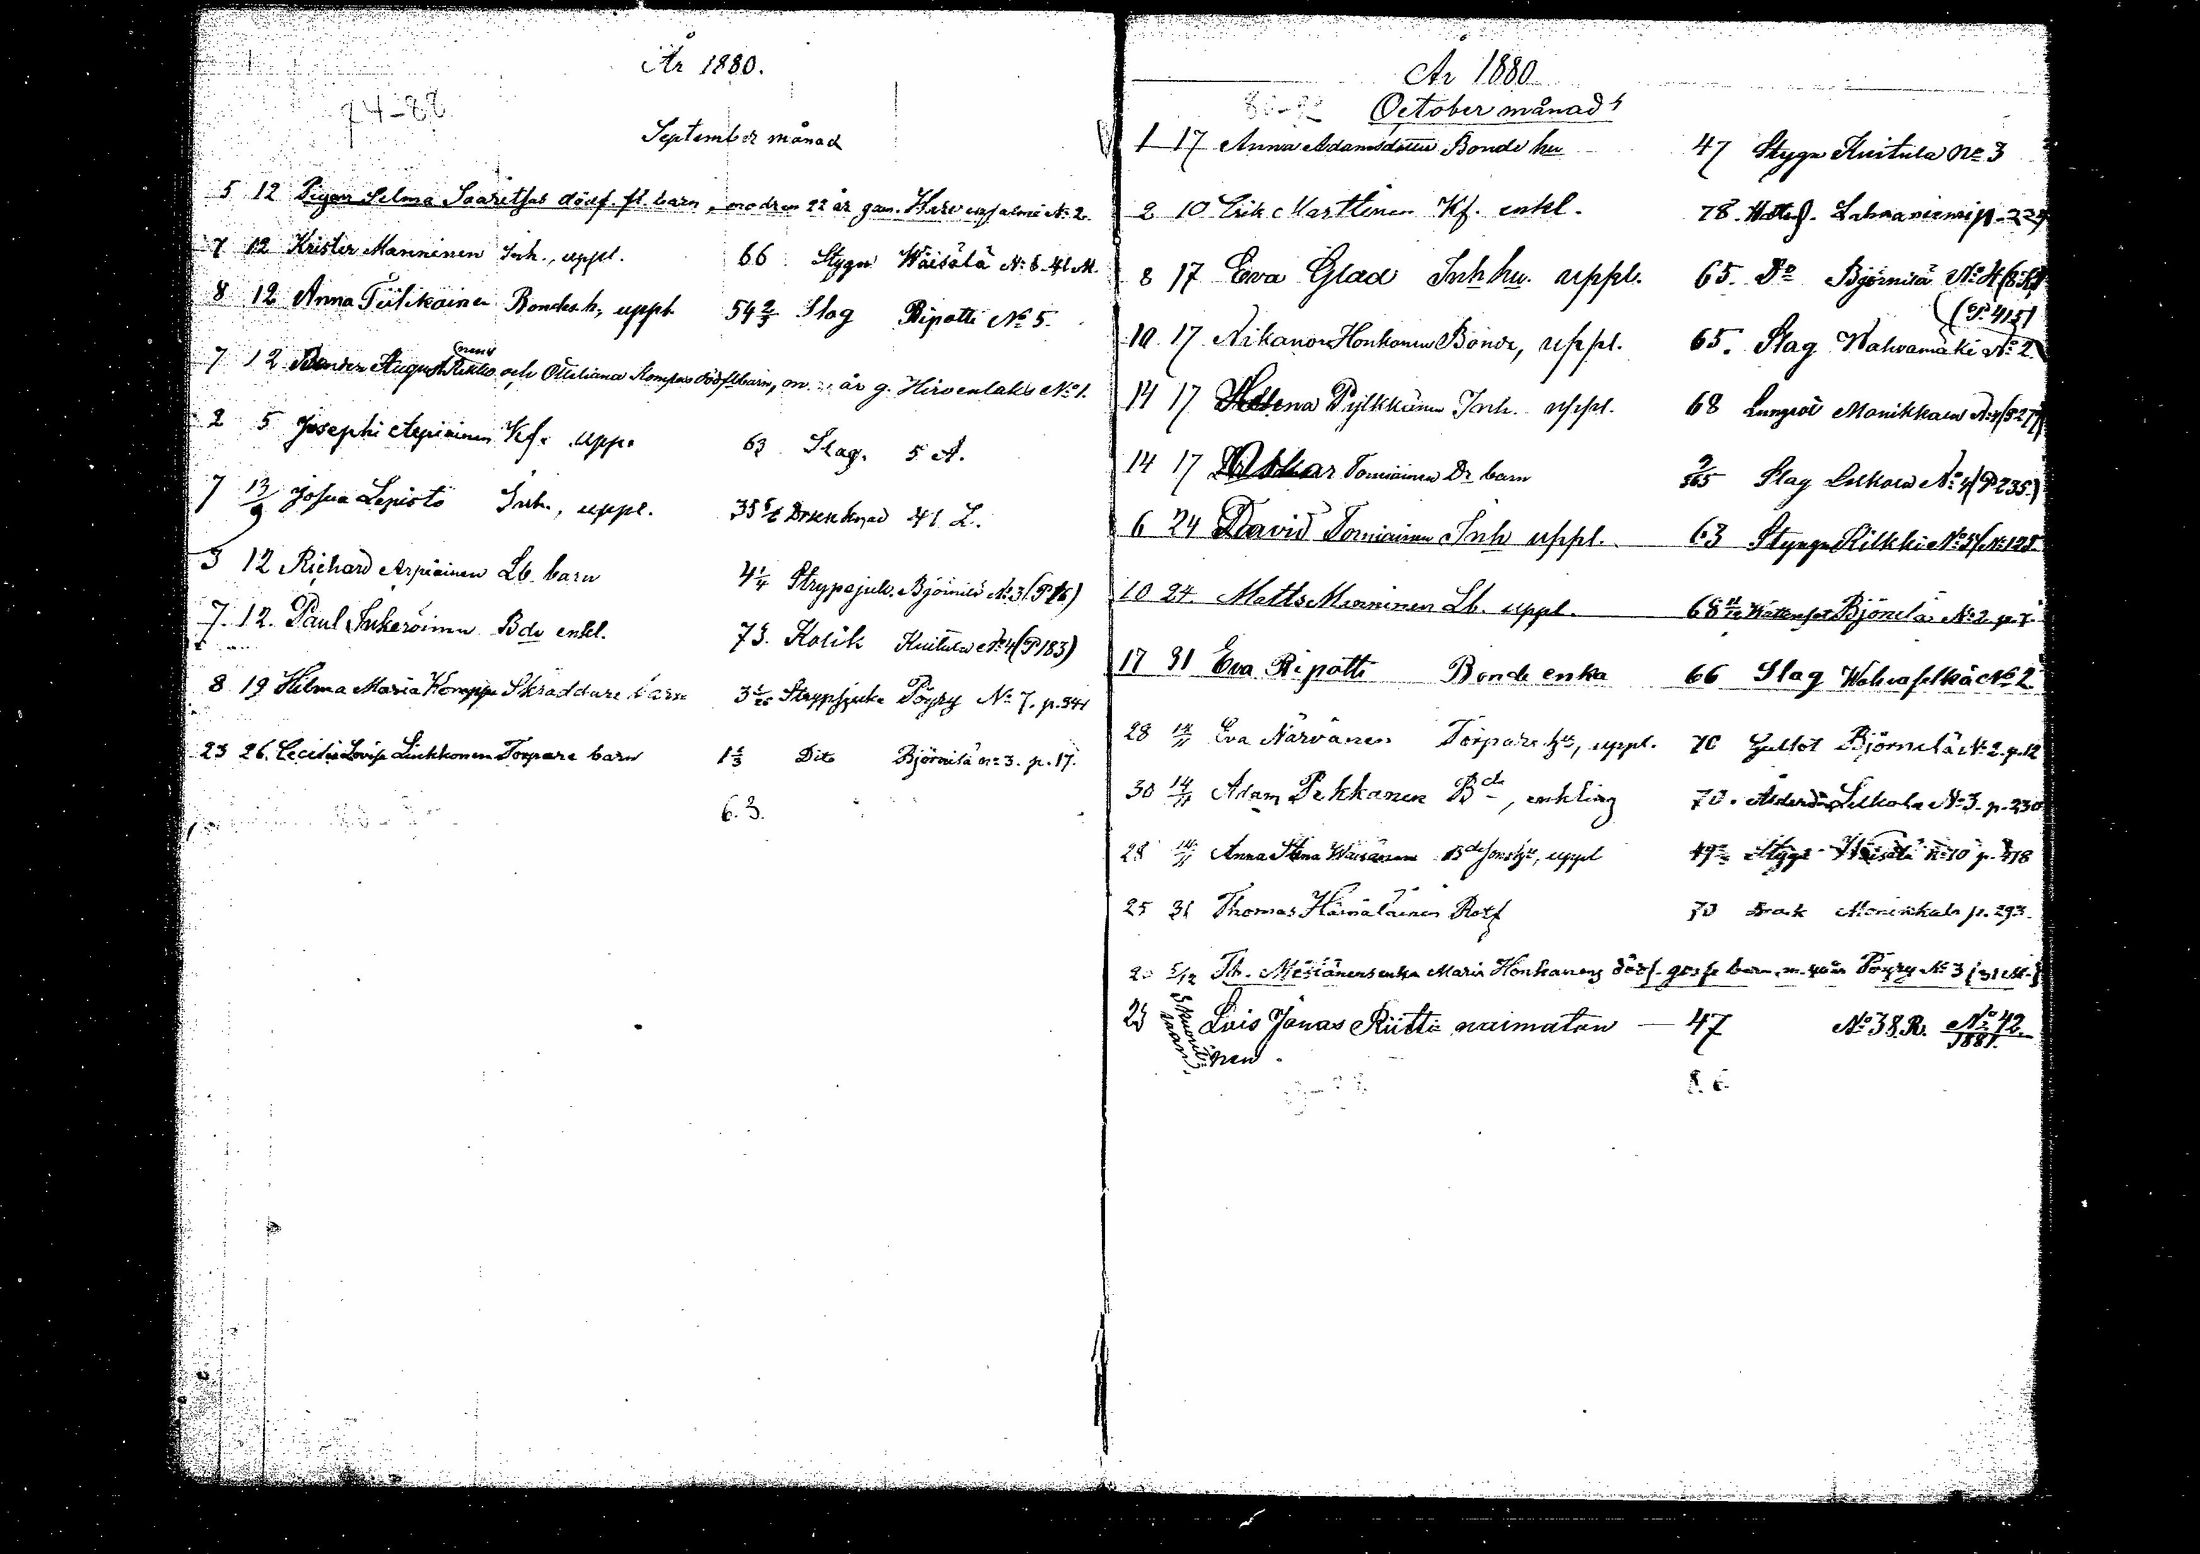 År 1880.
74-88
September månad
5 12 Pigan Selma Saaretsas dödf. fl. barn, modren 22 år gam. Hirvenjalmi No 2.
7 12 Krister Manninen Inh., uppl. 66 Stygn Wäisälä No 6 41 M.
8 12 Anna Tiilikainen Bondeh., uppl. 54 2/3 Slag Ripatti No 5.
7 12 August Pekko och Ottiliana Komppas dödf. barn, m. år g. Hirvenlaks No 1.
2 5 Josephi Arpiainen Kf. upp. 63 Slag. 5 A.
7 13/9 Josua Lepistö Inh., uppl. 35 41 L.
3 12 Richard Arpiainen Lb. barn 4 1/4 Strypsjuk. Björnilä No 3 (P 16)
7. 12. Paul Inkeröinen Bde enkl. 73. Kolik Kuitula No 4 (P 183)
8 19 Hilma Maria Komppa Skräddare barn 3 Strypsjuka Pöyry No 7. p. 341
23 26. Cecilia Lovisa Liukkonen Torpare barn 1 2/3 Dito Björnilä no 3. p. 17.
6. 3.
År 1880
October månad
1 17 Anna Adamsdotter Bonde hu 47 Stygn Kuitula No 3
2 10 Erik Marttinen Kf. enkl. 78. Wattus. Lahnaniemi p. 224
8 17 Eva Glad Inh hu. uppl. 65. Do Björnilä No 4
(P 415)
10 17 Nikanor Honkanen Bonde, uppl. 65. Slag Wahvamäki No 2
14 17 Helena Pylkkänen Inh. uppl. 68 Lungsot Monikkala No 4
14 17 Oskar Torniainen Dr barn 2/365 Slag Lelkola No 4 (P 235.)
6 24 David Torniainen Inh uppl. 63 Stygn Kilkki No 5
10 24. Matts Manninen Lb. uppl. 68 Wattensot Björnilä No 2. p. 7.
17 31 Eva Ripatti Bonde enka 66 Slag Wahvaselkä No 2.
28 14/11 Eva Närvänen Torpare hu, uppl. 70 Gulsot Björnilä No 2. p. 12
30 14/11 Adam Pekkanen Bde, enkling 70. Lelkola No 3. p. 230
28 14/11 Anna Stina Waisänen Bdesons hu, uppl 49 Stygn Wäisälä no 10 p. 418
25 31 Thomas Hämäläinen Rotf 70 Brak Monikkala p. 293.
20 5/12 Th. enka Maria Honkanens dödf. gosse barn, m. 40 år Pöyry No 3 (31 M.)
25 Lois Jonas Riitti naimaton — 47 No 38. R. No 42. 1881.
nen.
8. 6.